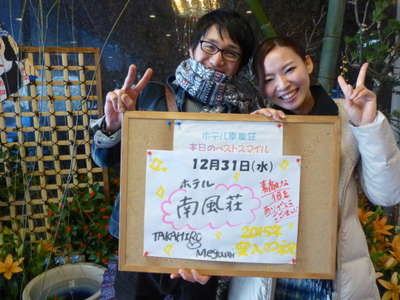 ホテル南風荘
本日のベストスマイル
12月31日(水)
ホテル
南風荘
素敵な
1日を
ありがとう
ございました
TAKAHIRO
2015年